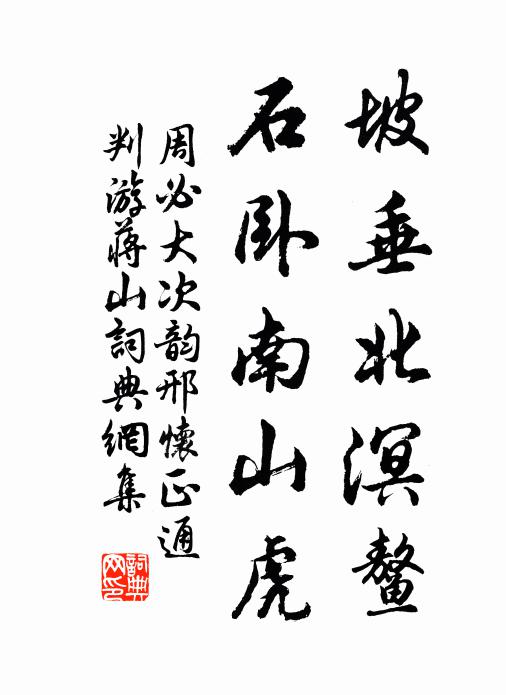 坡垂北溟鳌
石卧南山虎
周必大次韵邢懷正通
判游蔣山詞典網集
詞典网印